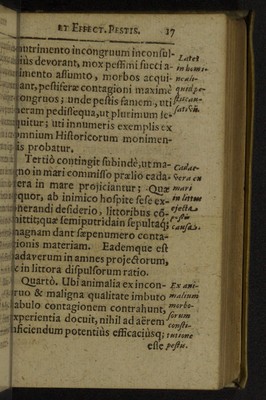 ET EFFECT. PESTIS. 17
nutrimento incongruum inconsul-
ius devorant, mox pessimi succi a-
imento assumto, morbos acqui-
ant, pestiferæ contagioni maximè
ongruos; unde pestis famem, uti
eram pedissequa, ut plurimum se-
uitur; uti innumeris exemplis ex
omnium Historicorum monimen-
is probatur.
Latet
in homi-
Tertiò contingit subinde, ut ma-
no in mari commisso prælio cada-
era in mare projiciantur; Quæ
quor, ab inimico hospite sese ex-
nerandi desiderio, littoribus cõ-
mittit, quæ semiputridain sepultaq;
magnam dant sæpenumero conta-
ionis materiam. Eademque est
adaverum in amnes projectorum,
c in littora dispulsorum ratio.
Cadav-
vera ex
mari
in littus
ejecta
pestis
causa.
Quartò. Ubi animalia ex incon-
ruo & maligna qualitate imbuto
abulo contagionem contrahunt,
xperientia docuit, nihil ad aërem
nficiendum potentiùs efficaciùsq;
esse
Ex ani-
malium
morbo-
sorum
consti-
tutione
pestis.